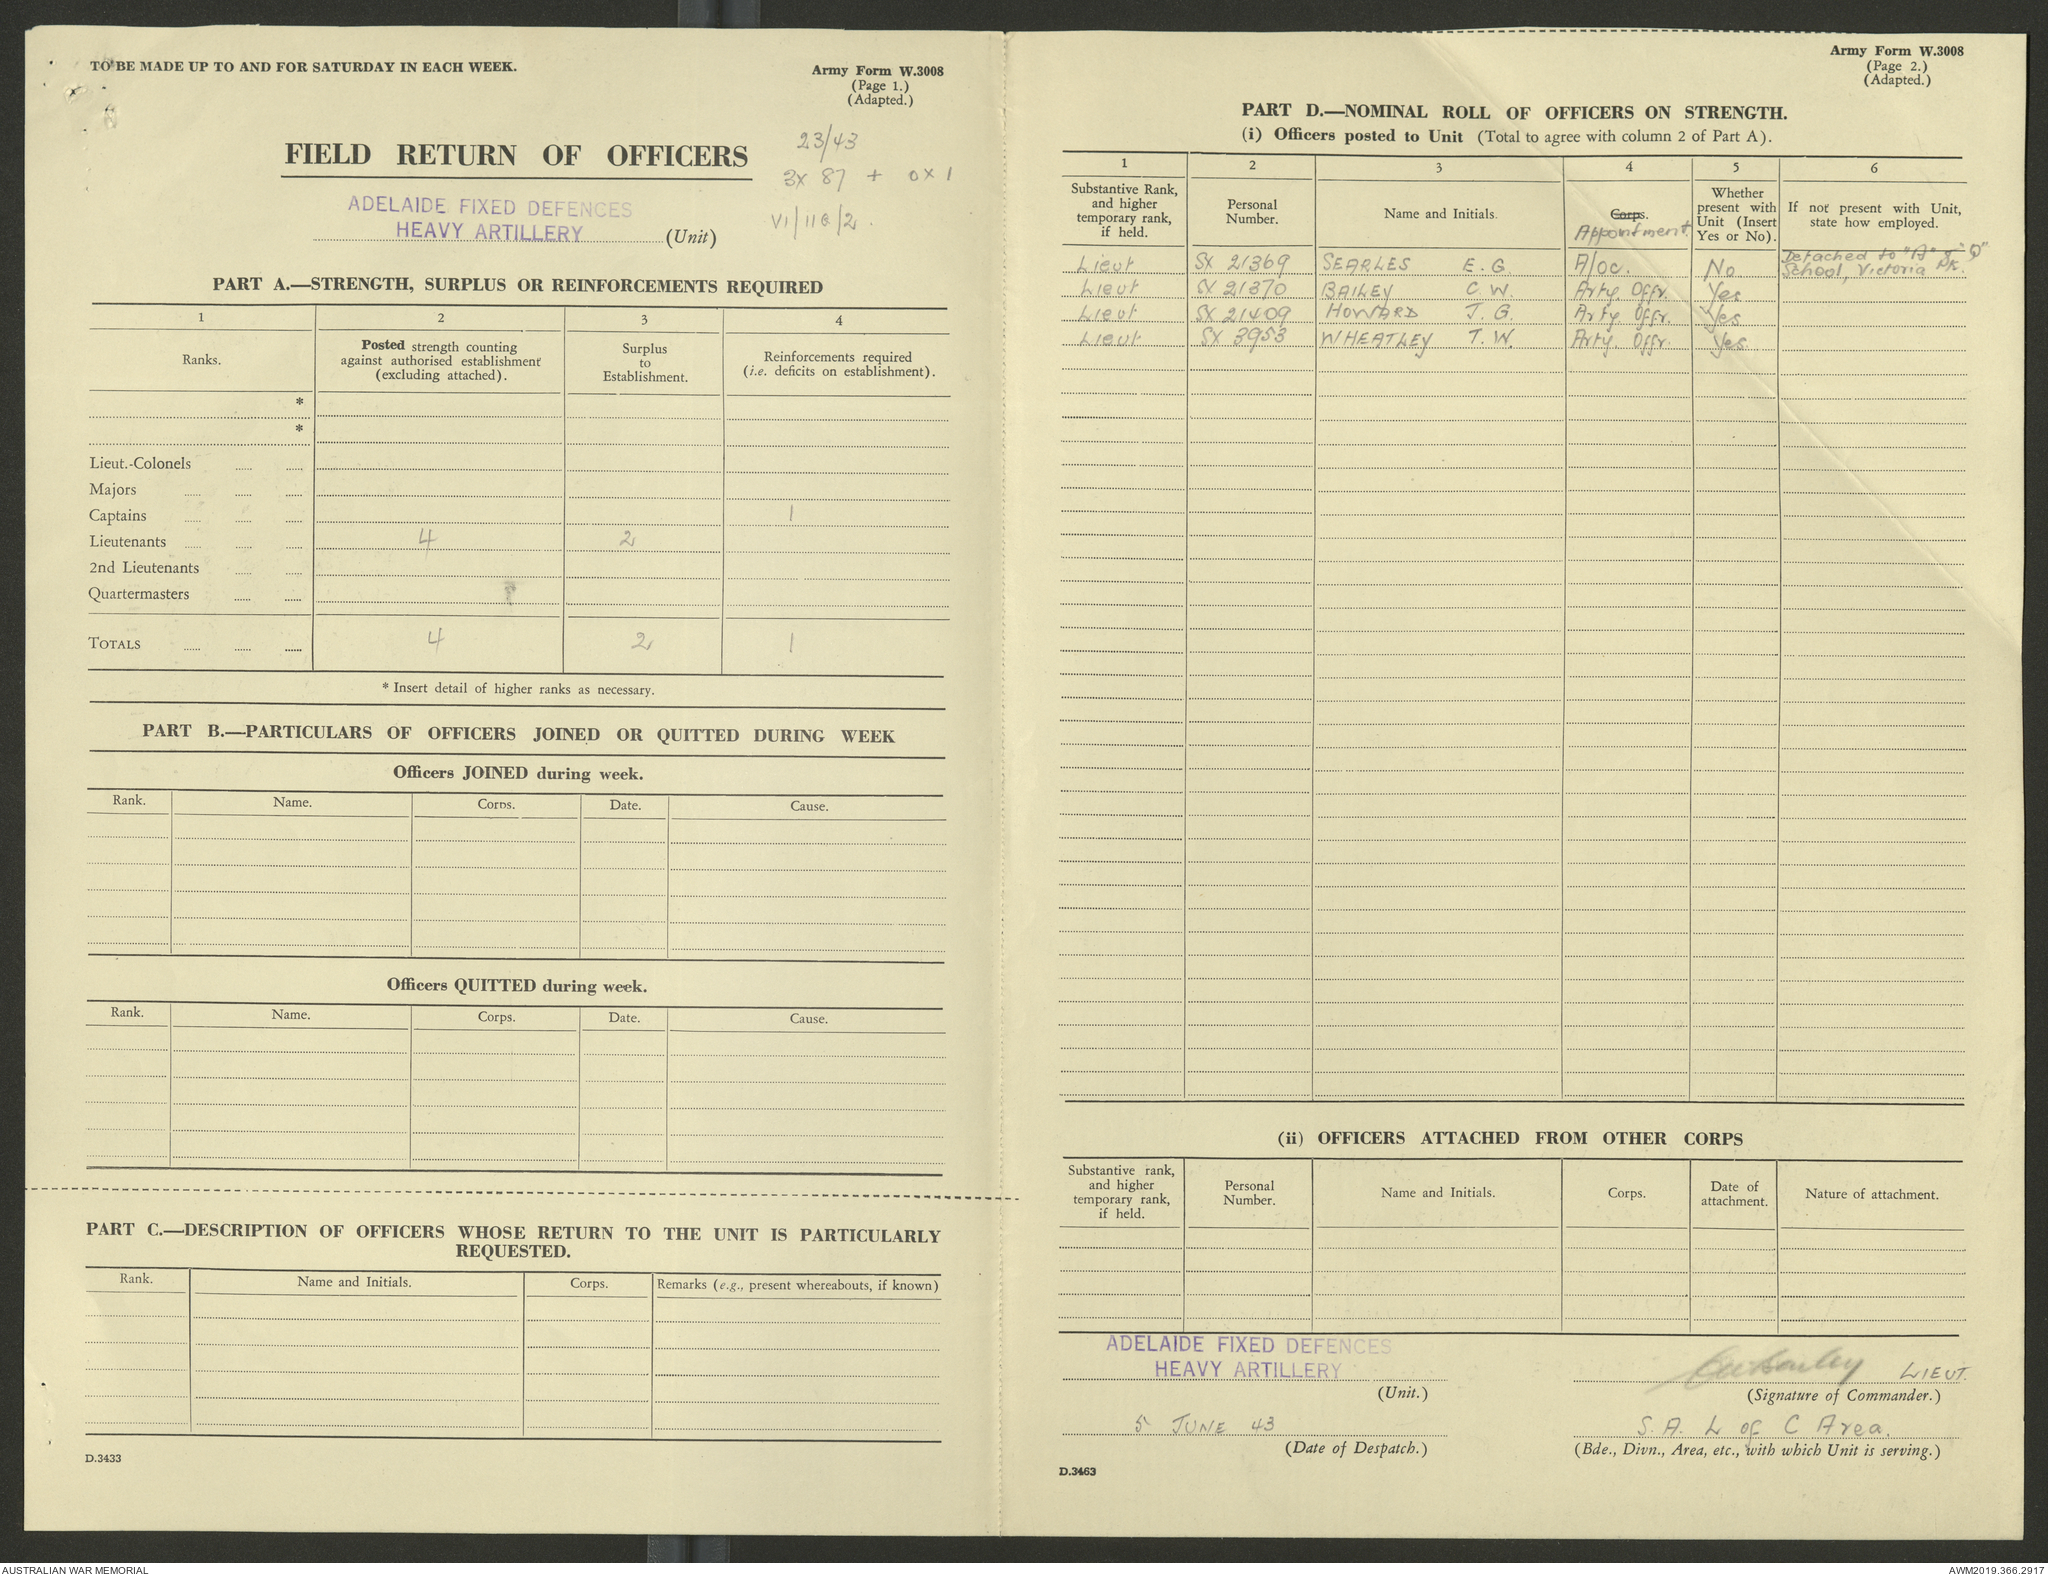 TO BE MADE UP TO AND FOR SATURDAY IN EACH WEEK.
Army Form W.3008
(Page 1.)
(Adapted.)
23/43
3x 87 + 0x1
VI/11G/2.
FIELD RETURN OF OFFICERS
ADELAIDE FIXED DEFENCES
HEAVY ARTILLERY (Unit)
PART A.—STRENGTH, SURPLUS OR REINFORCEMENTS REQUIRED
1 2 3 4
Ranks. Posted strength counting against authorised establishment (excluding attached). Surplus to Establishment. Reinforcements required (i.e. deficits on establishment).
*
*
Lieut.-Colonels
Majors
Captains 1
Lieutenants 4 2
2nd Lieutenants
Quartermasters
TOTALS 4 2 1
* Insert detail of higher ranks as necessary.
PART B.—PARTICULARS OF OFFICERS JOINED OR QUITTED DURING WEEK
Officers JOINED during week.
Rank. Name. Corps. Date. Cause.
Officers QUITTED during week.
Rank. Name. Corps. Date. Cause.
PART C.—DESCRIPTION OF OFFICERS WHOSE RETURN TO THE UNIT IS PARTICULARLY
REQUESTED.
Rank. Name and Initials. Corps. Remarks (e.g., present whereabouts, if known)
D.3433
Army Form W.3008
(Page 2.)
(Adapted.)
PART D.—NOMINAL ROLL OF OFFICERS ON STRENGTH.
(i) Officers posted to Unit (Total to agree with column 2 of Part A).
1 2 3 4 5 6
Substantive Rank, and higher temporary rank, if held. Personal Number. Name and Initials. Corps. Appointment. Whether present with Unit (Insert Yes or No). If not present with Unit, state how employed.
Lieut SX 21369 SEARLES E.G. A/OC. No Detached to "A" & "Q" School, Victoria Pk.
Lieut SX 21370 BAILEY C.W. Arty. Offr. Yes
Lieut SX 21409 HOWARD J.G. Arty. Offr. Yes
Lieut SX 3953 WHEATLEY T.W. Arty. Offr. Yes
(ii) OFFICERS ATTACHED FROM OTHER CORPS
Substantive rank, and higher temporary rank, if held. Personal Number. Name and Initials. Corps. Date of attachment. Nature of attachment.
ADELAIDE FIXED DEFENCES
HEAVY ARTILLERY
(Unit.)
LIEUT.
(Signature of Commander.)
5 JUNE 43
(Date of Despatch.)
S.A. L of C Area.
(Bde., Divn., Area, etc., with which Unit is serving.)
D.3463
AUSTRALIAN WAR MEMORIAL
AWM2019.366.2917